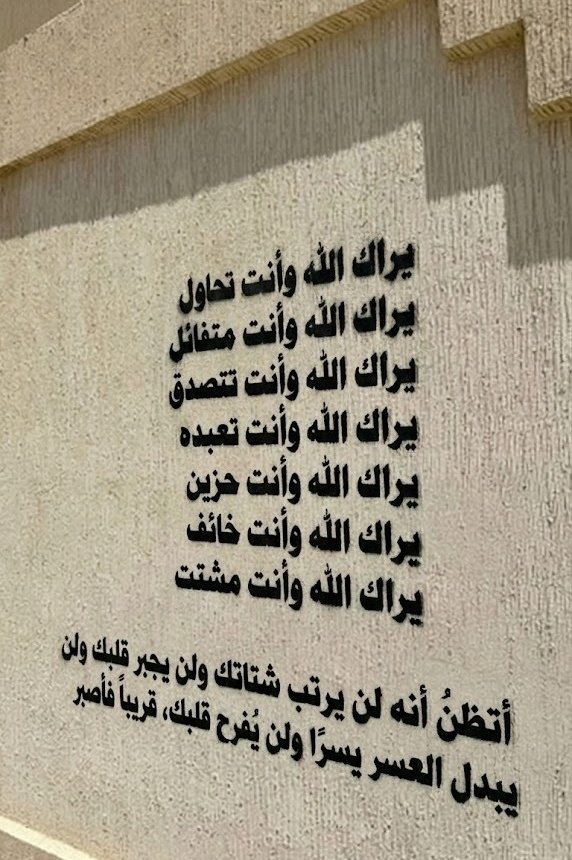 يراك الله وأنت تحاول
يراك الله وأنت متفائل
يراك الله وأنت تتصدق
يراك الله وأنت تعبده
يراك الله وأنت حزين
يراك الله وأنت خائف
يراك الله وأنت مشتت
أتظنُ أنه لن يرتب شتاتك ولن يجبر قلبك ولن
يبدل العسر يسرًا ولن يُفرح قلبك، قريباً فأصبر